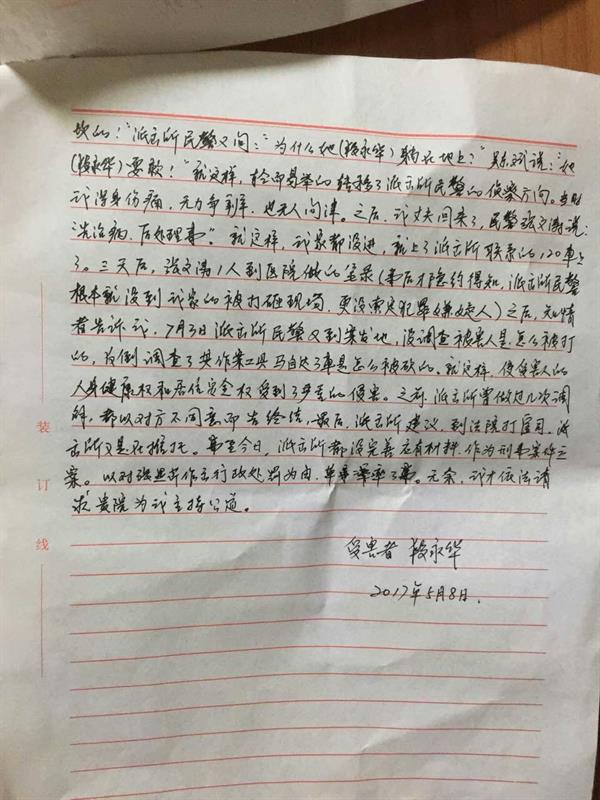 坎的！”派出所民警又问：“为什么他(段永华)躺在地上？”说：“他
(段永华)要歇！”就这样，轻而易举的转移了派出所民警的侦察方向。当时
我浑身伤痛，无力争辩，也无人问津。之后，我丈夫回来了，民警张文满说：
“先治病，后处理事”。就这样，我家都没进，就上了派出所联系的120车走
了。三天后，张文满1人到医院做的笔录(事后才隐约得知，派出所民警
根本就没到我家的被打砸现场，更没索定犯罪嫌疑人)之后，知情
者告诉我，7月3日派出所民警又到案发地，没调查被害人是怎么被打
的，而倒调查了其作案工具马自达3车是怎么被砍的。就这样，使受害人的
人身健康权和居住安全权受到了严重的侵害。之前，派出所曾做过几次调
解，都以对方不同意而告终结，最后，派出所建议，到法院打官司。派
出所又是在推托。事至今日，派出所都没完善应有材料，作为刑事案件立
案。以对张作出行政处罚为由，草草率率了事。无奈，我才依法请
求贵院为我主持公道。
受害者 段永华
2017年5月8日.
装
订
线